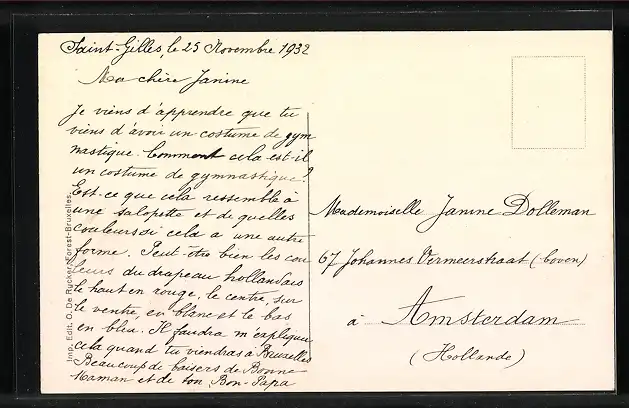 Saint-Gilles, le 25 Novembre 1932
Ma chère Janine
Je viens d'apprendre que tu
viens d'avoir un costume de gym
nastique. Comment cela est-il
un costume de gymnastique?
Est-ce que cela ressemble à
une salopette et de quelles
couleurs si cela a une autre
forme. Peut-être bien les cou
leurs du drapeau hollandais
le haut en rouge, le centre, sur
le ventre, en blanc et le bas
en bleu. Il faudra m'expliquer
cela quand tu viendras à Bruxelles
Beaucoup de baisers de Bonne
Maman et de ton Bon-Papa
Mademoiselle Janine Dolleman
67 Johannes Vermeerstraat (boven)
à Amsterdam
(Hollande)
Imp. Edit. O. De Rycker, Forest-Bruxelles